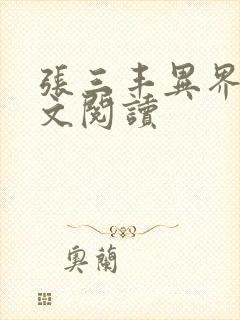 張三丰異界
文閱讀
奧蘭